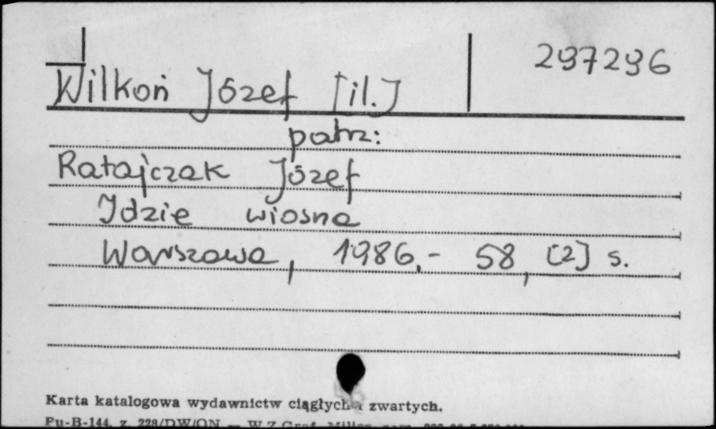 Wilkoń Józef [il.] 297296
patrz:
Ratajczak Józef
Idzie wiosna
Warszawa, 1986.- 58, [2] s.
Karta katalogowa wydawnictw ciągłych zwartych.
Pu-B-144, z. 228/DW/ON — W.Z.Graf.